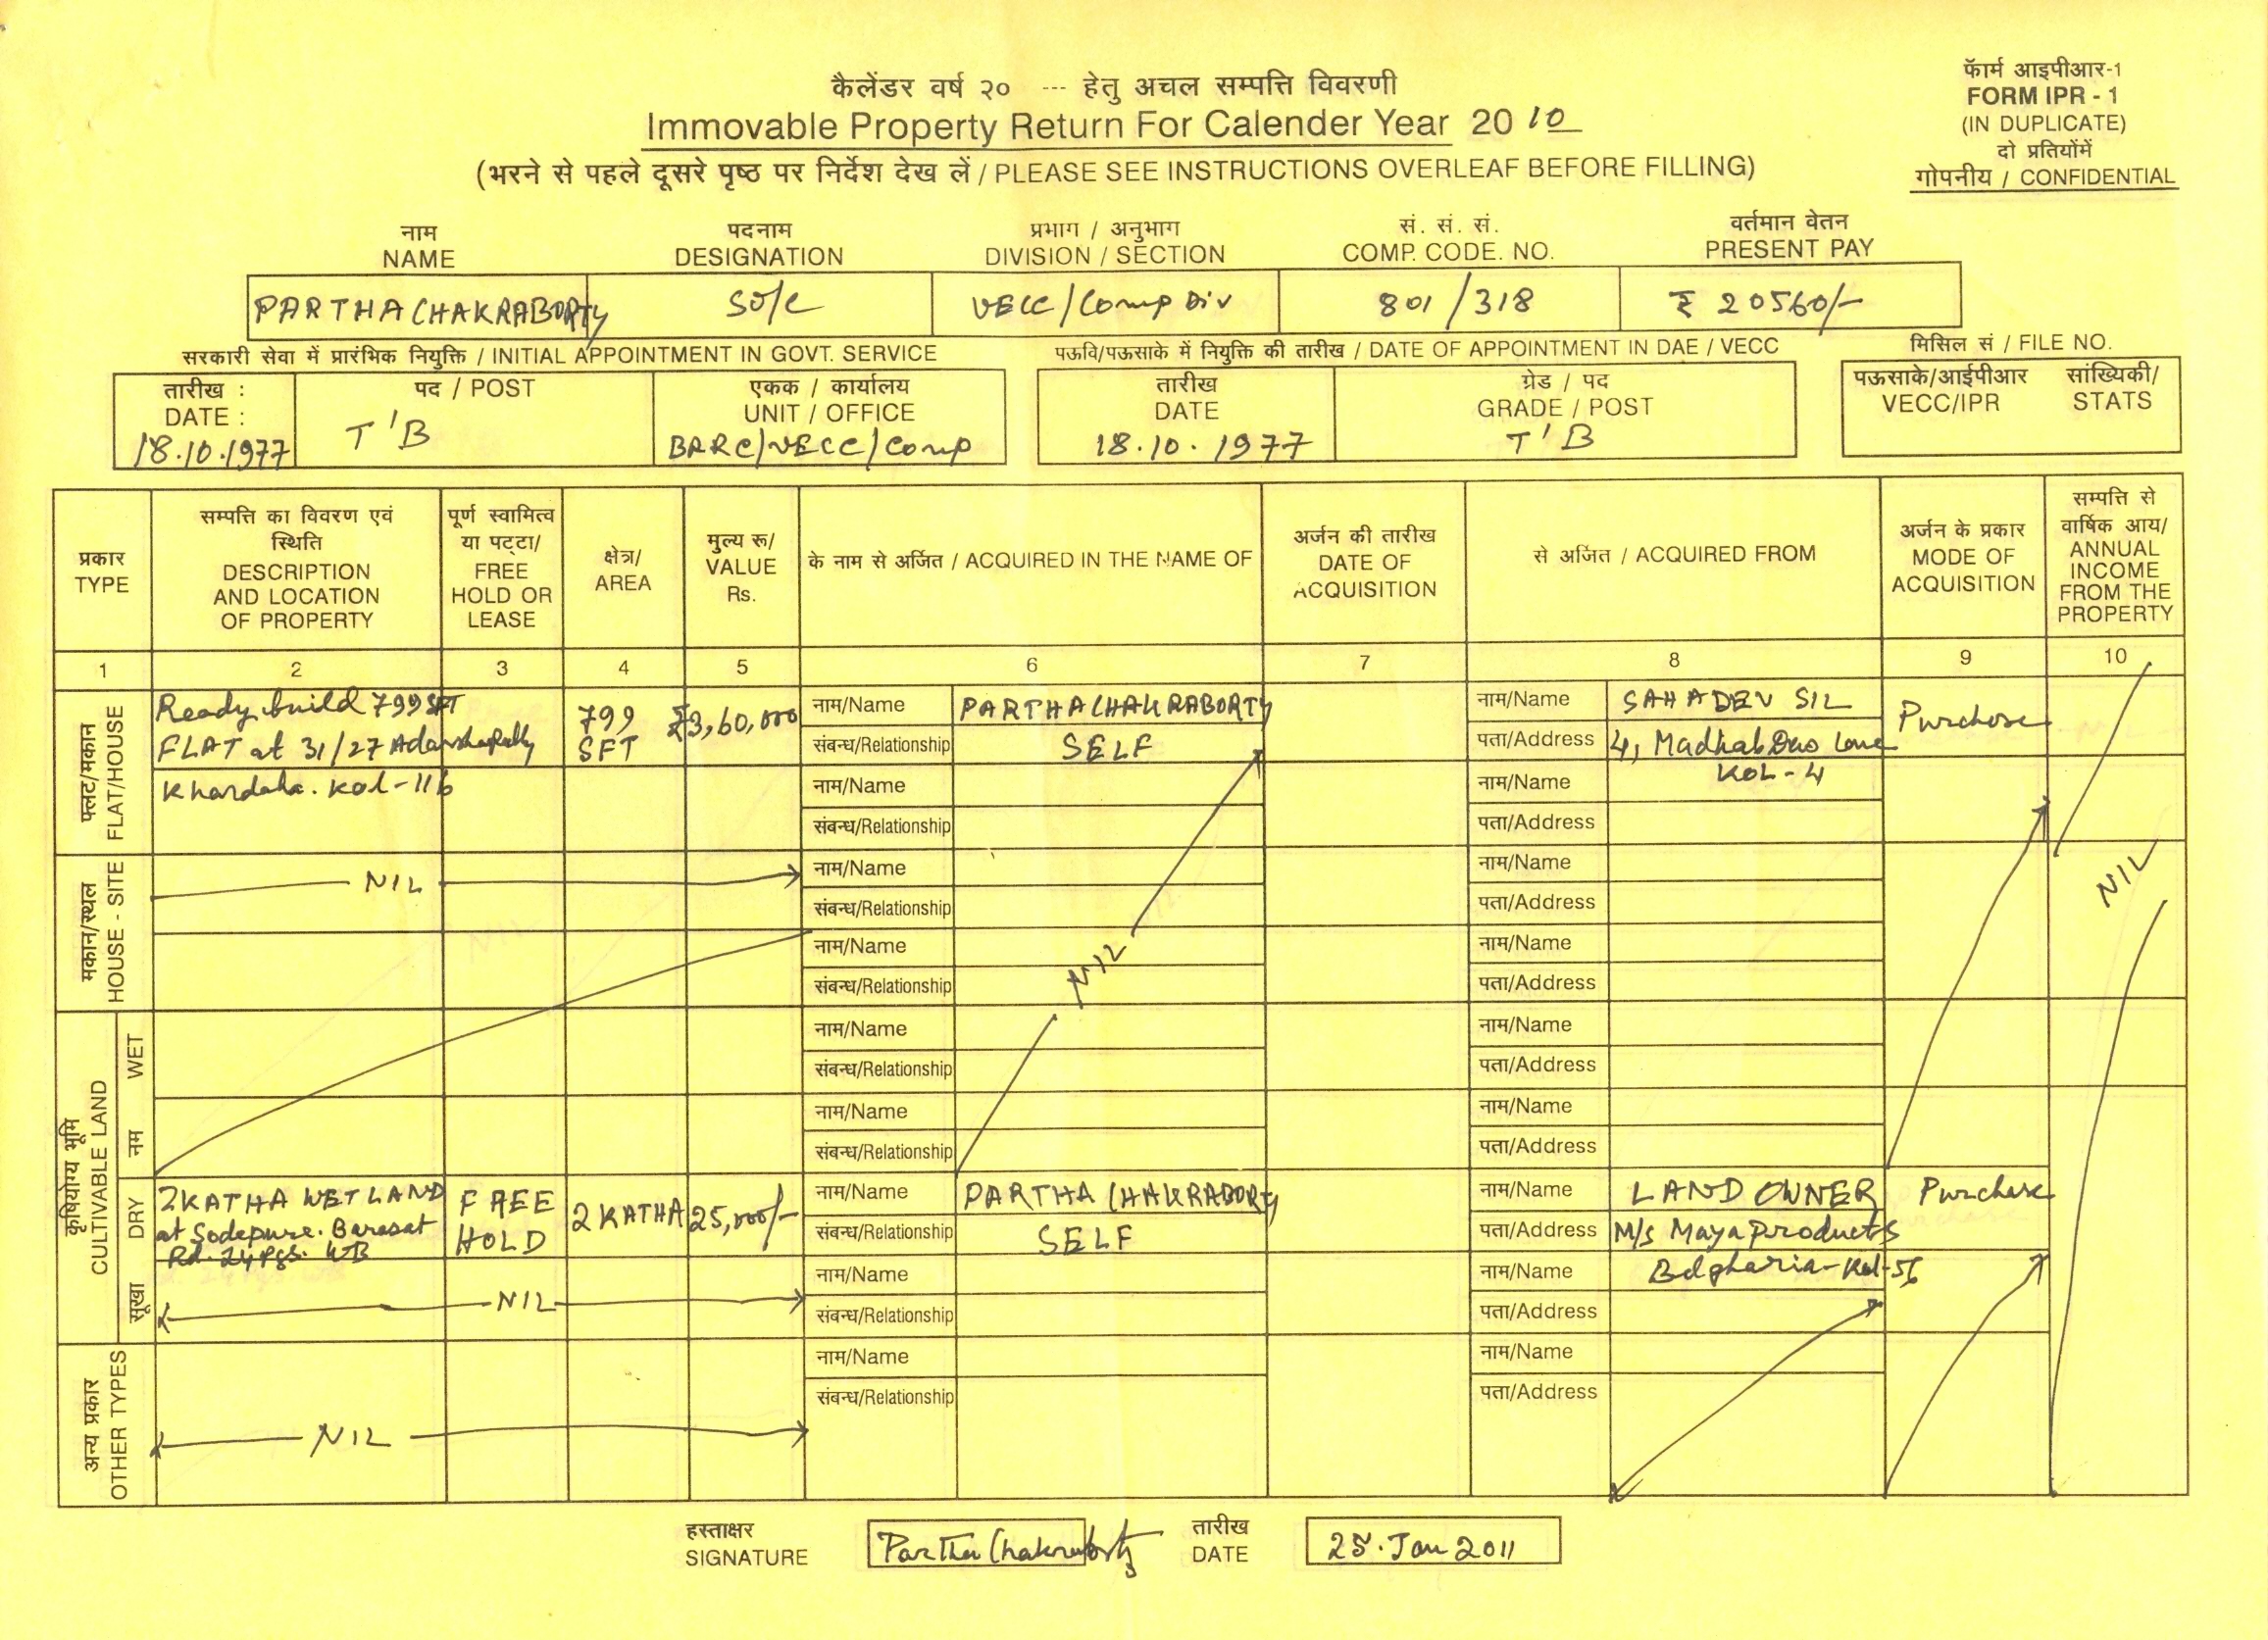 कैलेंडर वर्ष २० --- हेतु अचल सम्पत्ति विवरणी
Immovable Property Return For Calender Year 20 10
(भरने से पहले दूसरे पृष्ठ पर निर्देश देख लें / PLEASE SEE INSTRUCTIONS OVERLEAF BEFORE FILLING)
फॅार्म आइपीआर-1
FORM IPR - 1
(IN DUPLICATE)
दो प्रतियोंमें
गोपनीय / CONFIDENTIAL
नाम
NAME
पदनाम
DESIGNATION
प्रभाग / अनुभाग
DIVISION / SECTION
सं. सं. सं.
COMP. CODE. NO.
वर्तमान वेतन
PRESENT PAY
PARTHA CHAKRABORTY
SO/C
VECC/Comp Div
801/318
₹ 20560/-
सरकारी सेवा में प्रारंभिक नियुक्ति / INITIAL APPOINTMENT IN GOVT. SERVICE
पऊवि/पऊसाके में नियुक्ति की तारीख / DATE OF APPOINTMENT IN DAE / VECC
मिसिल सं / FILE NO.
तारीख :
DATE :
18.10.1977
पद / POST
T'B
एकक / कार्यालय
UNIT / OFFICE
BARC/VECC/Comp
तारीख
DATE
18.10.1977
ग्रेड / पद
GRADE / POST
T'B
पऊसाके/आईपीआर
VECC/IPR
सांख्यिकी/
STATS
प्रकार
TYPE
सम्पत्ति का विवरण एवं
स्थिति
DESCRIPTION
AND LOCATION
OF PROPERTY
पूर्ण स्वामित्व
या पट्टा/
FREE
HOLD OR
LEASE
क्षेत्र/
AREA
मुल्य रू/
VALUE
Rs.
के नाम से अर्जित / ACQUIRED IN THE NAME OF
अर्जन की तारीख
DATE OF
ACQUISITION
से अर्जित / ACQUIRED FROM
अर्जन के प्रकार
MODE OF
ACQUISITION
सम्पत्ति से
वार्षिक आय/
ANNUAL
INCOME
FROM THE
PROPERTY
1 2 3 4 5 6 7 8 9 10
फ्लॅट/मकान
FLAT/HOUSE
Ready build 799 SFT
FLAT at 31/27 Adarshapally
Khardaha. Kol-116
799
SFT
₹3,60,000
नाम/Name PARTHA CHAKRABORTY
संबन्ध/Relationship SELF
नाम/Name SAHADEV SIL
पता/Address 4, Madhab Das Lane
KOL-4
Purchase
नाम/Name
संबन्ध/Relationship
नाम/Name
पता/Address
मकान/स्थल
HOUSE - SITE
NIL
नाम/Name
संबन्ध/Relationship
नाम/Name
पता/Address
NIL
नाम/Name
संबन्ध/Relationship
NIL
नाम/Name
पता/Address
कृषियोग्य भूमि
CULTIVABLE LAND
नम
WET
नाम/Name
संबन्ध/Relationship
नाम/Name
पता/Address
नाम/Name
संबन्ध/Relationship
नाम/Name
पता/Address
सूखा
DRY
2KATHA WETLAND
at Sodepure. Barasat
Rd. 24 Pgs. WB
FREE
HOLD
2 KATHA
25,000/-
नाम/Name PARTHA CHAKRABORTY
संबन्ध/Relationship SELF
नाम/Name LAND OWNER
पता/Address M/s Maya Products
Belgharia-Kol-56
Purchase
NIL
नाम/Name
संबन्ध/Relationship
नाम/Name
पता/Address
अन्य प्रकार
OTHER TYPES
NIL
नाम/Name
संबन्ध/Relationship
नाम/Name
पता/Address
हस्ताक्षर
SIGNATURE
Partha Chakraborty
तारीख
DATE
25.Jan 2011